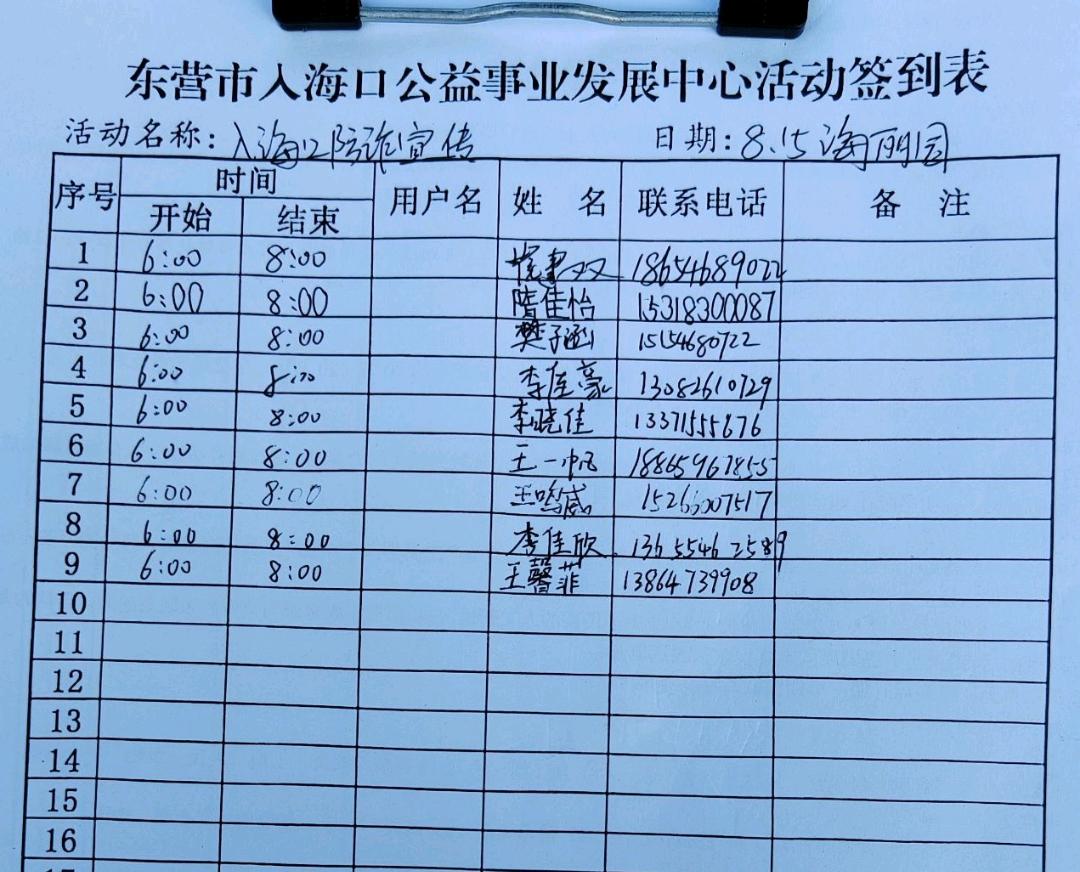 东营市入海口公益事业发展中心活动签到表
活动名称：入海口防诈宣传 日期：8.15 海丽园
序号 时间 用户名 姓 名 联系电话 备 注
开始 结束
1 6:00 8:00 双双 18654689022
2 6:00 8:00 隋佳怡 15318300087
3 6:00 8:00 樊子涵 15154680722
4 6:00 8:00 李佳豪 13082610729
5 6:00 8:00 李晓佳 13371555876
6 6:00 8:00 王一帆 18865967855
7 6:00 8:00 王鸣威 15266007517
8 6:00 8:00 李佳欣 13655462589
9 6:00 8:00 王馨菲 13864739908
10
11
12
13
14
15
16